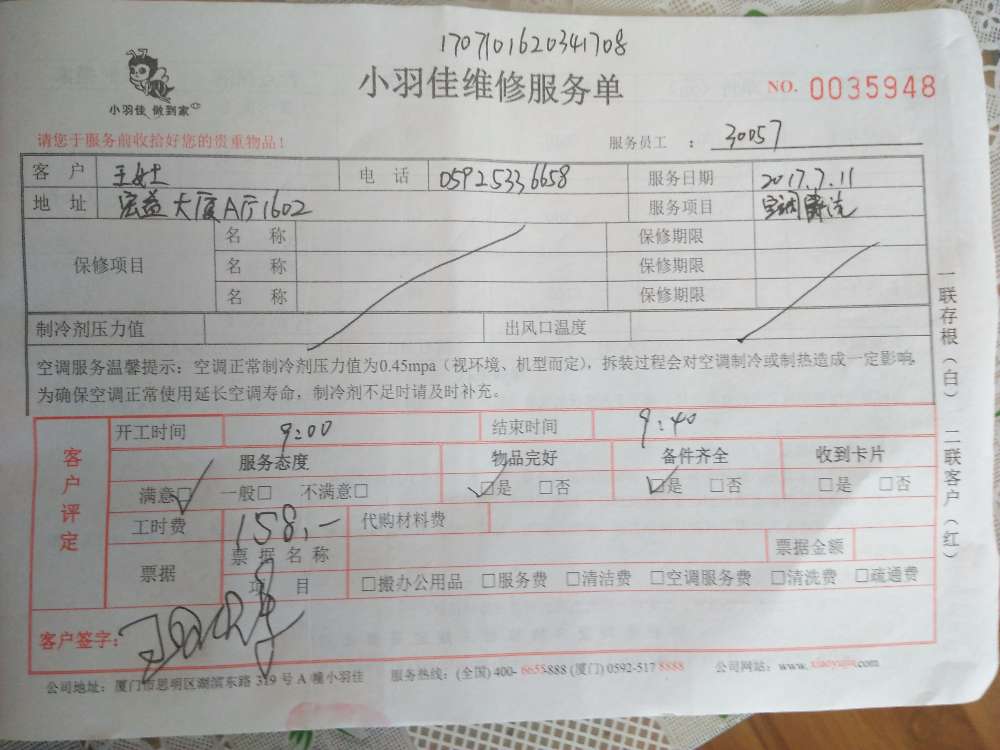 1707101620341708
小羽佳 做到家
小羽佳维修服务单
NO. 0035948
请您于服务前收拾好您的贵重物品！
服务员工 ： 30057
客 户 王女士 电 话 05925336658 服务日期 2017.7.11
地 址 宏益大厦A厅1602 服务项目 空调清洗
保修项目 名 称 保修期限
名 称 保修期限
名 称 保修期限
制冷剂压力值 出风口温度
空调服务温馨提示：空调正常制冷剂压力值为0.45mpa（视环境、机型而定），拆装过程会对空调制冷或制热造成一定影响，
为确保空调正常使用延长空调寿命，制冷剂不足时请及时补充。
客户评定
开工时间 9:00 结束时间 9:40
服务态度 物品完好 备件齐全 收到卡片
满意□ 一般□ 不满意□ □是 □否 □是 □否 □是 □否
工时费 158,- 代购材料费
票据 票据名称 票据金额
项 目 □搬办公用品 □服务费 □清洁费 □空调服务费 □清洗费 □疏通费
客户签字：
公司地址：厦门市思明区湖滨东路319号A幢小羽佳 服务热线：(全国) 400-6655888 (厦门) 0592-5178888 公司网站：www.xiaoyujia.com
一联存根（白） 二联客户（红）